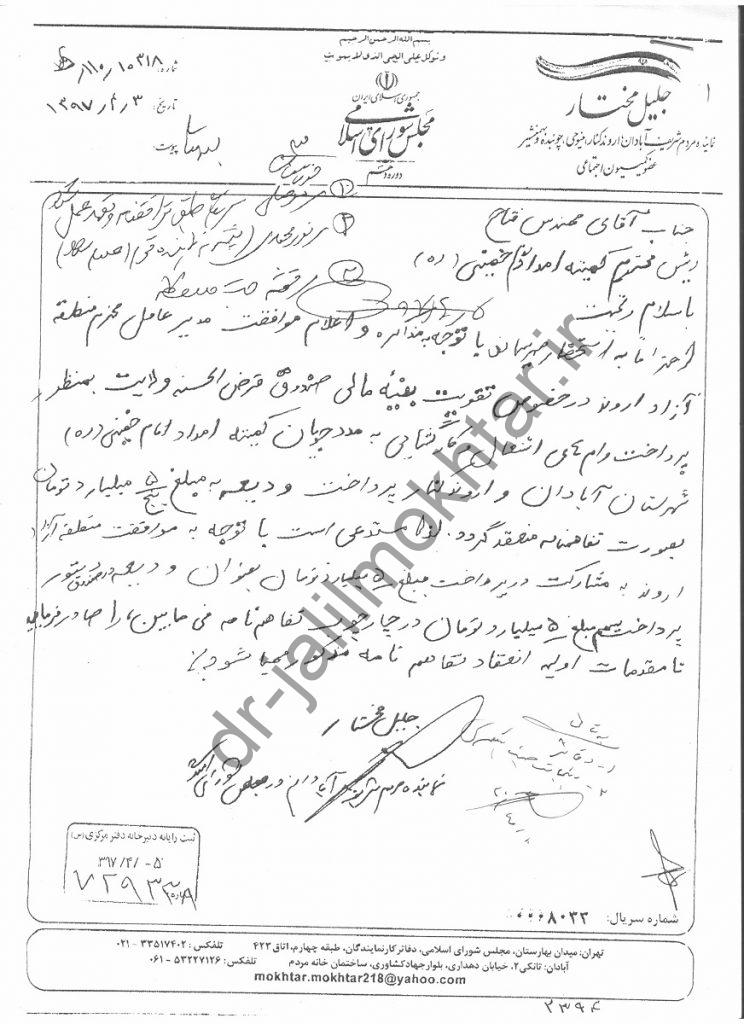 بسم الله الرحمن الرحیم
و توکل علی الحی الذی لا یموت
جمهوری اسلامی ایران
مجلس شورای اسلامی
دوره دهم
شماره: ۱۰۳۱۸/۱۱۰/
تاریخ: ۱۳۹۷/۴/۳
پیوست:
جلیل مختار
نماینده مردم شریف آبادان، اروندکنار، مینوحی، چوئبده و بهمنشیر
عضو کمیسیون اجتماعی
جناب آقای مهندس فتاح
رئیس محترم کمیته امداد امام خمینی (ره)
با سلام و تحیت
احتراماً به استحضار میرساند با توجه به مذاکره و اعلام موافقت مدیر عامل محترم منطقه
آزاد اروند در خصوص تقویت بنیه مالی صندوق قرض الحسنه ولایت بمنظور
پرداخت وام های اشتغال و کارگشایی به مددجویان کمیته امداد امام خمینی (ره)
شهرستان آبادان و اروندکنار پرداخت ودیعه به مبلغ ۵ پنج میلیارد تومان
بصورت تفاهمنامه منعقد گردد. لذا مستدعی است با توجه به موافقت منطقه آزاد
اروند به مشارکت در پرداخت مبلغ ۵ میلیارد تومان بعنوان ودیعه در صندوق دستور
پرداخت سهم مبلغ ۵ میلیارد تومان در چارچوب تفاهم نامه فی مابین، را صادر فرمایید
تا مقدمات اولیه انعقاد تفاهم نامه مذکور مهیا شود.
جلیل مختار
نماینده مردم شریف آبادان در مجلس شورای اسلامی
ثبت رایانه دبیرخانه دفتر مرکزی (س)
۳۹۷/۴/ -۵
شماره سریال: ۸۰۳۳
تهران: میدان بهارستان، مجلس شورای اسلامی، دفاتر کارنمایندگان، طبقه چهارم، اتاق ۴۲۳ تلفکس: ۳۳۵۱۷۴۰۲ - ۰۲۱
آبادان: تانکی۲، خیابان دهداری، بلوار جهادکشاورزی، ساختمان خانه مردم تلفکس: ۵۳۲۲۷۱۲۶ - ۰۶۱
mokhtar.mokhtar218@yahoo.com
۲۳۹۴
dr-jalilmokhtar.ir